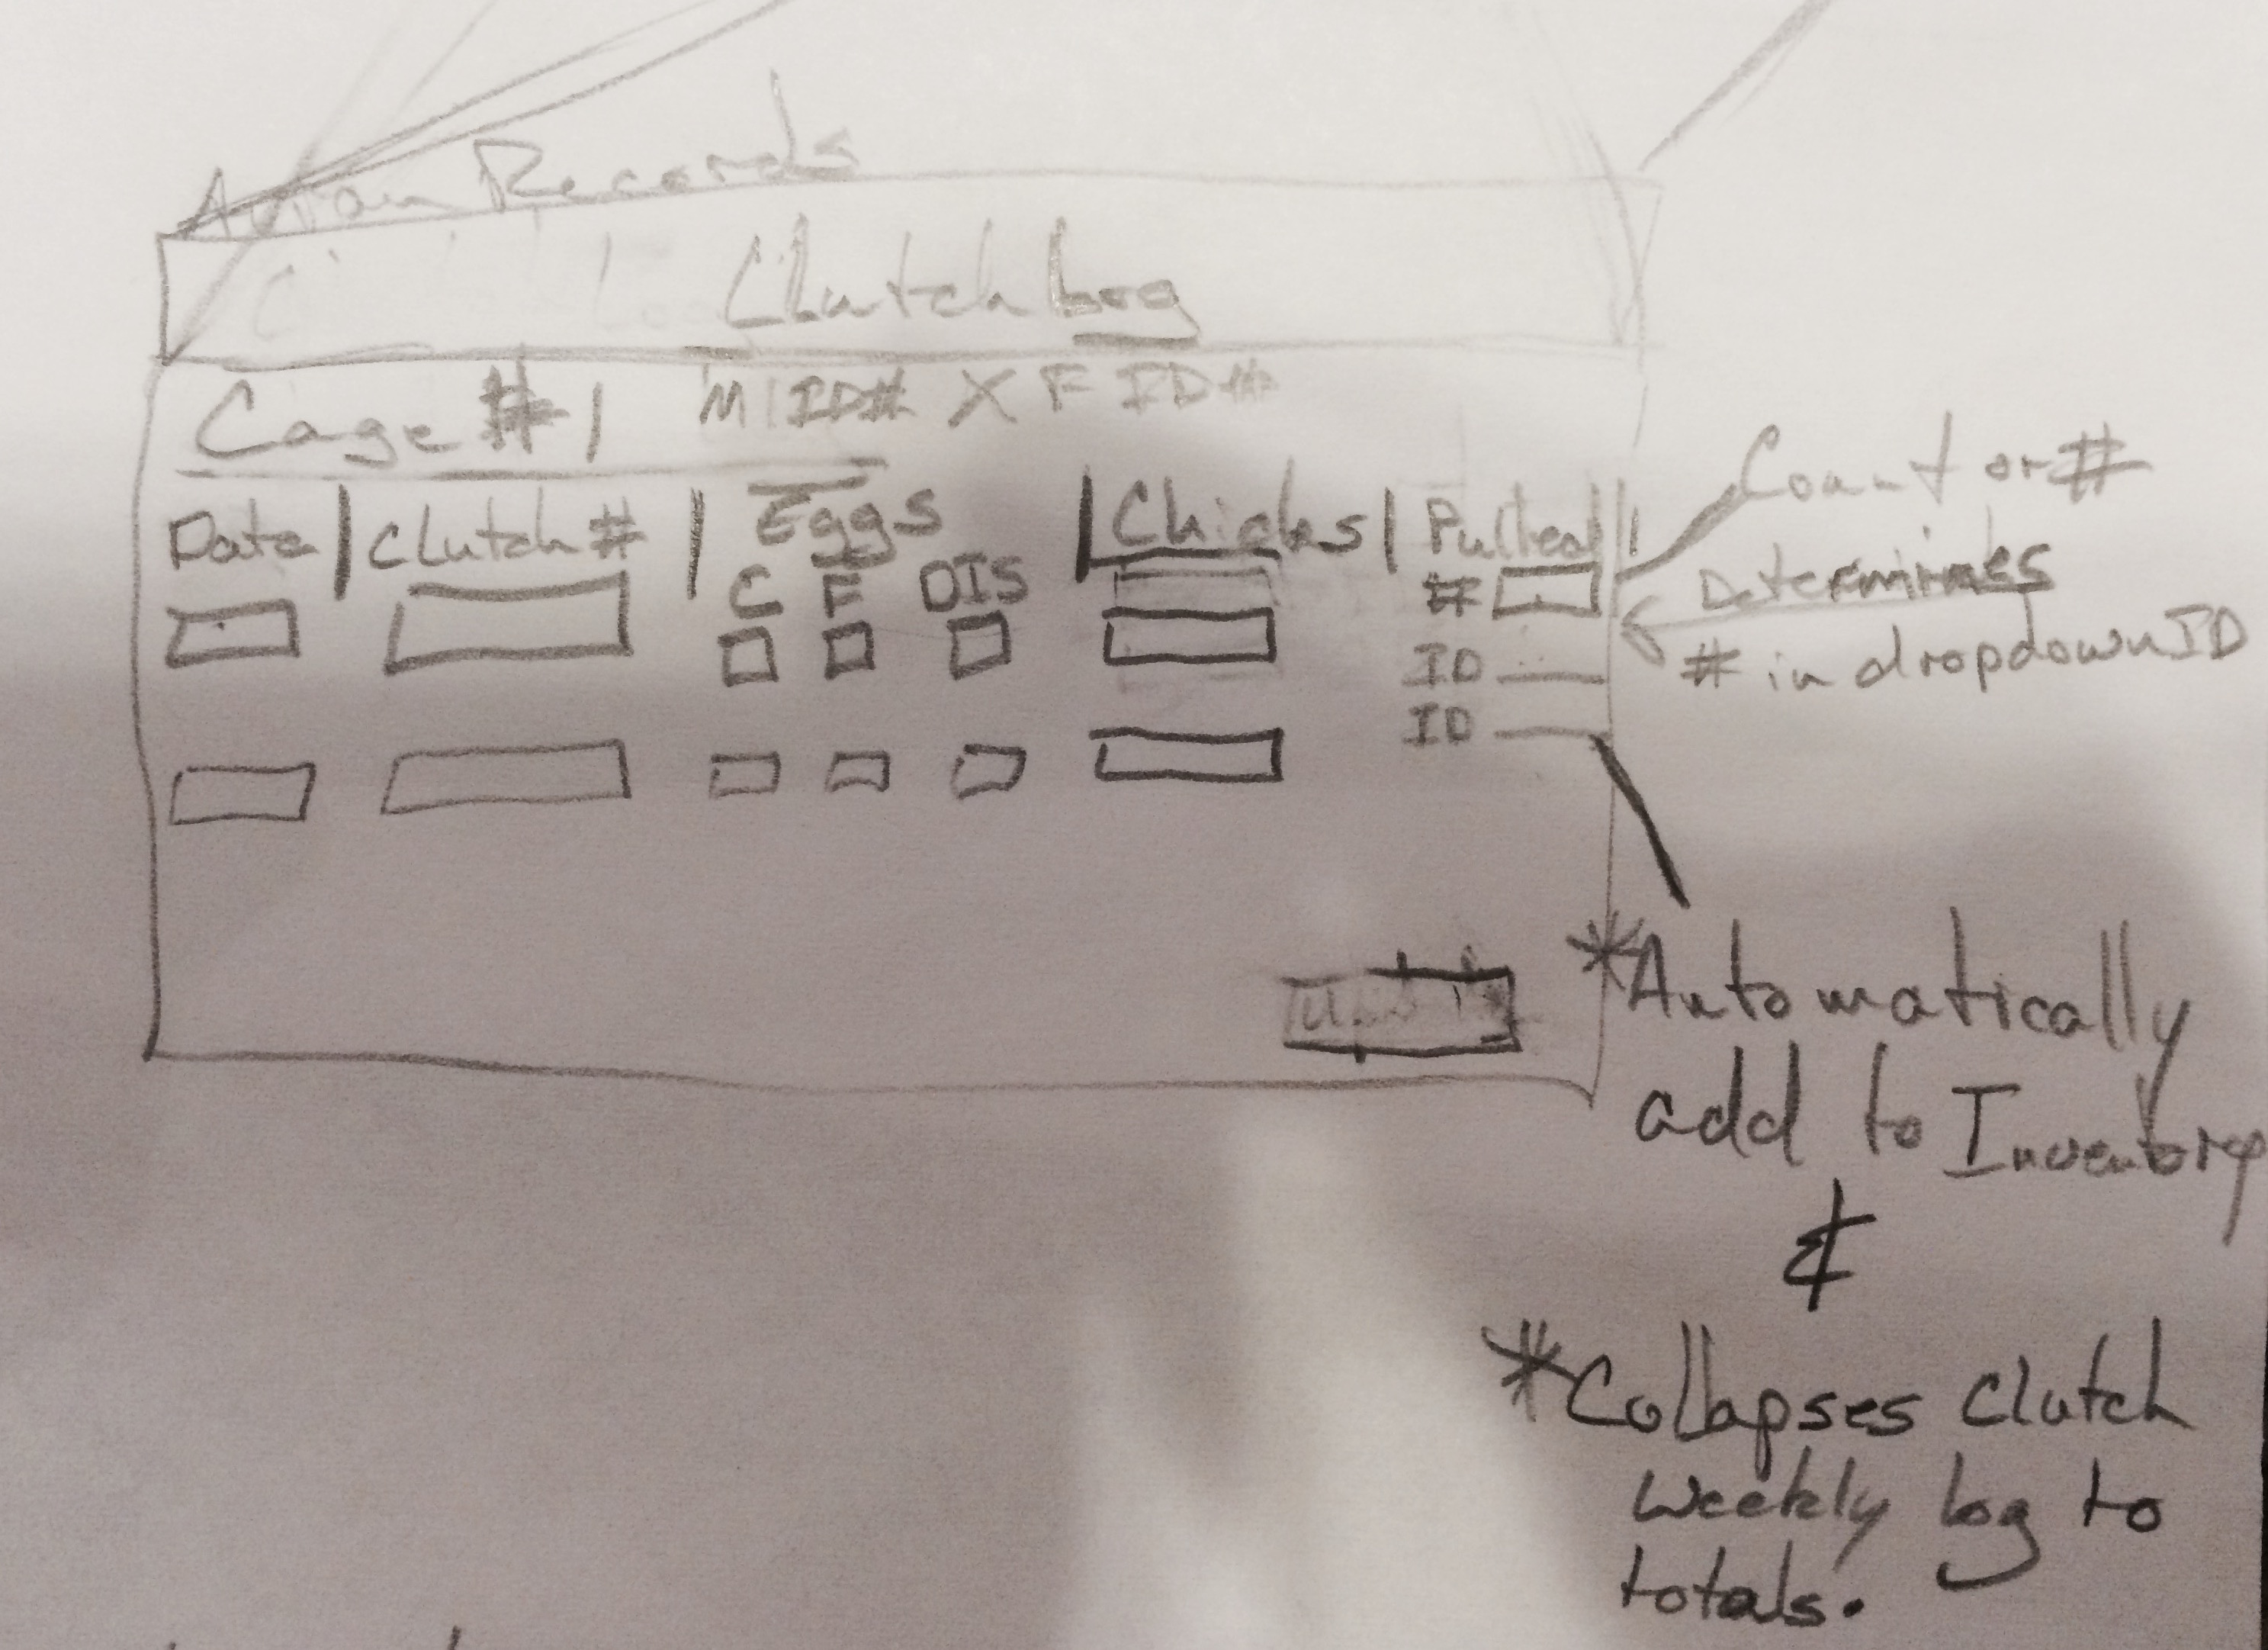 Avian Records
Clutch Log
Cage #1 M ID# X F ID#
Date | Clutch# | Eggs | Chicks | Pulled |
C F DIS
#
ID
ID
Count or #
Determines
# in dropdown ID
*Automatically
add to Inventory
&
*Collapses Clutch
Weekly log to
totals.